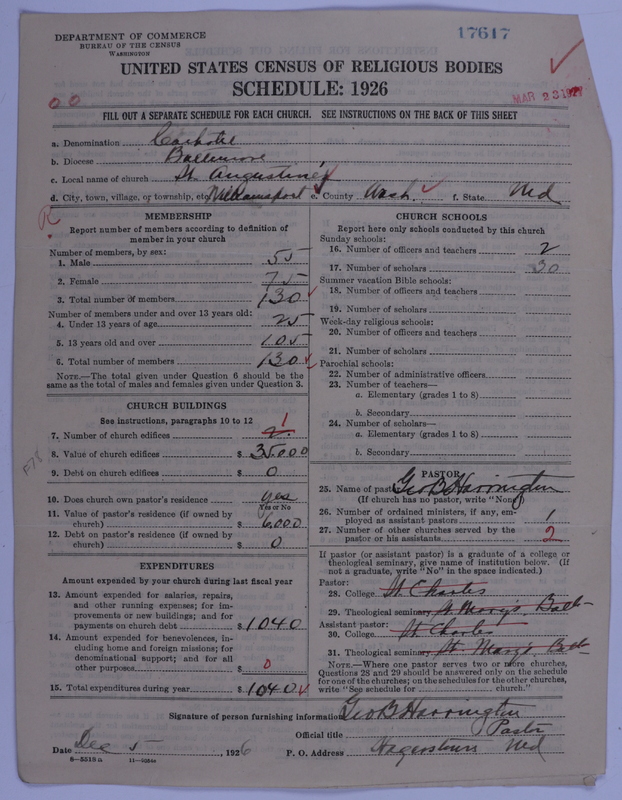 DEPARTMENT OF COMMERCE
BUREAU OF THE CENSUS
WASHINGTON
17617
UNITED STATES CENSUS OF RELIGIOUS BODIES
SCHEDULE: 1926
MAR 23 1927
FILL OUT A SEPARATE SCHEDULE FOR EACH CHURCH. SEE INSTRUCTIONS ON THE BACK OF THIS SHEET
a. Denomination Catholic
b. Diocese Baltimore
c. Local name of church St. Augustines
d. City, town, village, or township, etc. Williamsport e. County Wash. f. State Md
MEMBERSHIP
Report number of members according to definition of
member in your church
Number of members, by sex:
1. Male 55
2. Female 75
3. Total number of members 130
Number of members under and over 13 years old:
4. Under 13 years of age 25
5. 13 years old and over 105
6. Total number of members 130
NOTE.—The total given under Question 6 should be the
same as the total of males and females given under Question 3.
CHURCH BUILDINGS
See instructions, paragraphs 10 to 12
7. Number of church edifices 2 1
8. Value of church edifices $ 35.000
9. Debt on church edifices $ 0
10. Does church own pastor's residence yes
Yes or No
11. Value of pastor's residence (if owned by
church) $ 6,000
12. Debt on pastor's residence (if owned by
church) $ 0
EXPENDITURES
Amount expended by your church during last fiscal year
13. Amount expended for salaries, repairs,
and other running expenses; for im-
provements or new buildings; and for
payments on church debt $ 1040
14. Amount expended for benevolences, in-
cluding home and foreign missions; for
denominational support; and for all
other purposes $ 0
15. Total expenditures during year $ 1040
CHURCH SCHOOLS
Report here only schools conducted by this church
Sunday schools:
16. Number of officers and teachers 2
17. Number of scholars 30
Summer vacation Bible schools:
18. Number of officers and teachers
19. Number of scholars
Week-day religious schools:
20. Number of officers and teachers
21. Number of scholars
Parochial schools:
22. Number of administrative officers
23. Number of teachers—
a. Elementary (grades 1 to 8)
b. Secondary
24. Number of scholars—
a. Elementary (grades 1 to 8)
b. Secondary
PASTOR
25. Name of pastor Geo B Harrington
(If church has no pastor, write "None")
26. Number of ordained ministers, if any, em-
ployed as assistant pastors 1
27. Number of other churches served by the
pastor or his assistants 2
If pastor (or assistant pastor) is a graduate of a college or
theological seminary, give name of institution below. (If
not a graduate, write "No" in the space indicated.)
Pastor:
28. College St. Charles
29. Theological seminary St Mary's Balto
Assistant pastor:
30. College St. Charles
31. Theological seminary St. Mary's Balt
NOTE.—Where one pastor serves two or more churches,
Questions 28 and 29 should be answered only on the schedule
for one of the churches; on the schedules for the other churches,
write "See schedule for church."
Signature of person furnishing information Geo B Harrington
Official title Pastor
Date Dec 5, 1926 P. O. Address Hagerstown Md
8—5518a 11—9284a